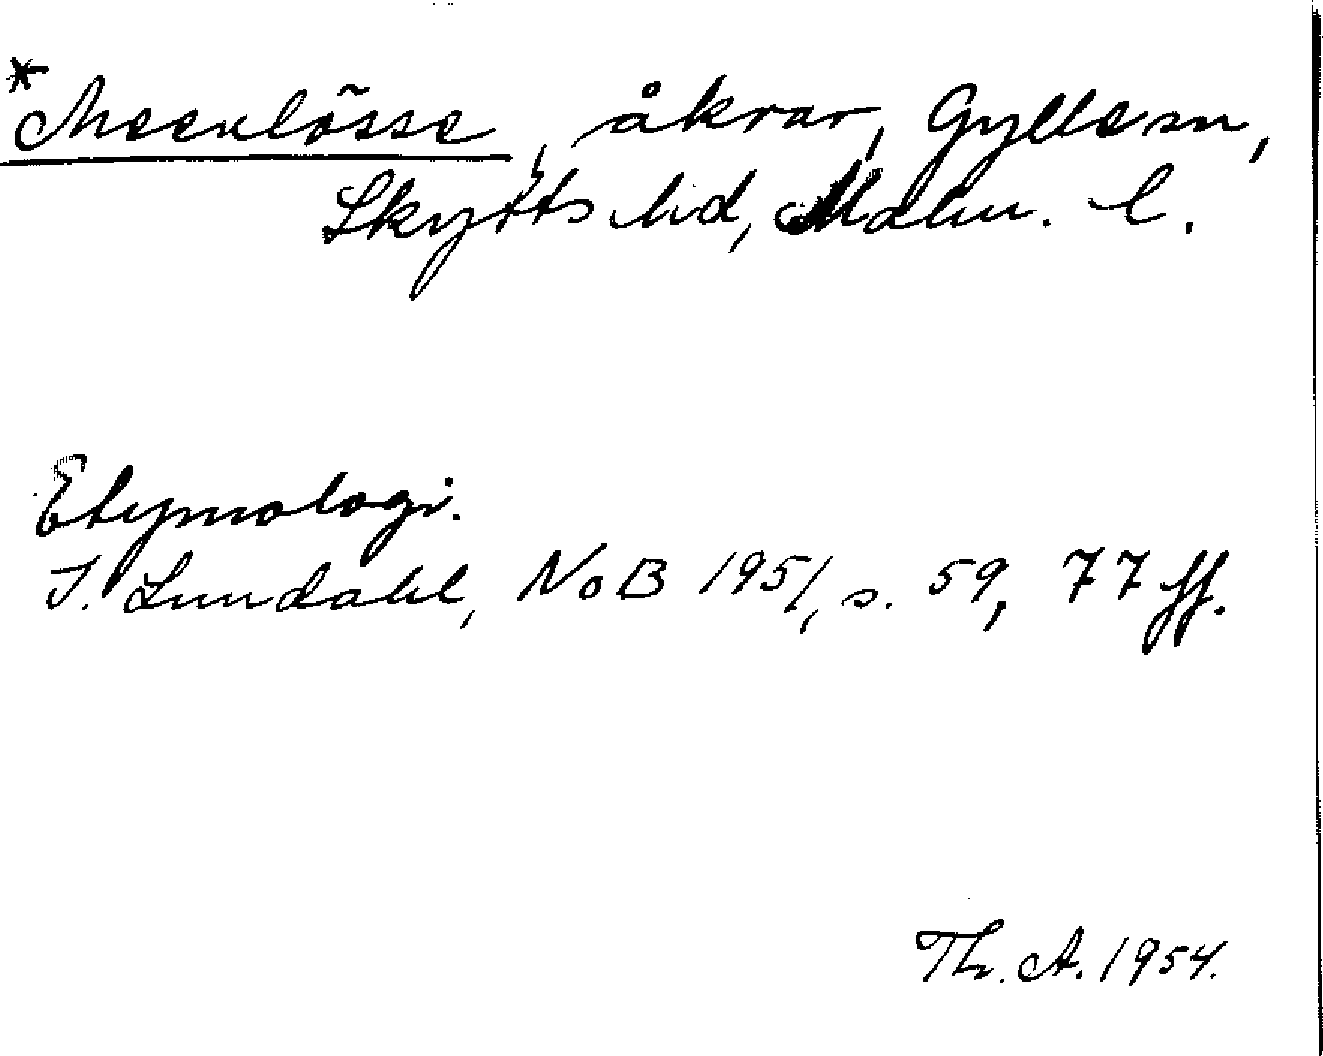 *Meenlösse, åkrar, Gyllesn,
Skytts hd, Malm. l.
Etymologi.
I. Lundahl, NoB 1951, s. 59, 77 ff.
Th. A. 1954.